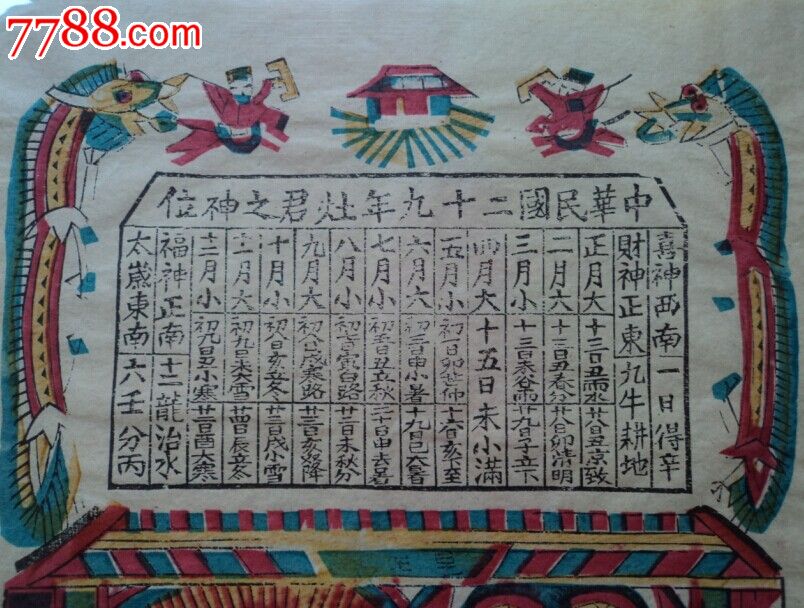 7788.com
中華民國二十九年灶君之神位
喜神西南 一日得辛
財神正東 九牛耕地
正月大 十三日丑雨水 廿八日丑京致
二月六 十三日丑春分 廿八日卯清明
三月小 十三日未谷雨 廿九日子立下
四月大 十五日未小滿
五月小 初一日卯芒仲 十六日亥下至
六月六 初三日申小暑 十九日巳大暑
七月小 初五日丑立秋 二十日申去暑
八月小 初七日寅白路 廿二日未秋分
九月大 初八日戌寒路 廿三日亥霜降
十月小 初八日亥立冬 廿三日戌小雪
十一月大 初九日未大雪 廿四日辰立冬
十二月小 初九日丑小寒 廿三日酉大寒
福神正南 十二龍治水
太歲東南 六壬分丙